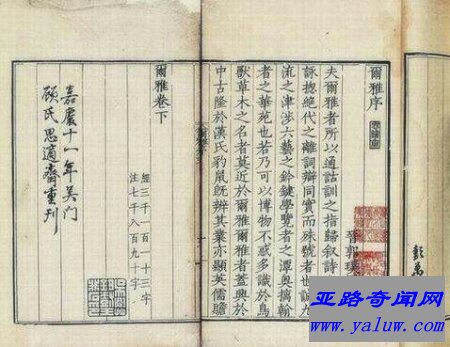 爾雅序
晉郭璞
夫爾雅者所以通詁訓之指歸叙詩
詠揔絶代之離詞辯同實而殊號者也誠九
流之津涉六藝之鈐鍵學覽者之潭奧摛翰
者之華苑也若乃可以博物不惑多識於鳥
獸草木之名者莫近於爾雅爾雅者蓋興於
中古隆於漢氏豹鼠既辯其業亦顯英儒贍
爾雅卷下
經三千一百一十三字
注七千八百九十字
嘉慶十一年吳門
顧氏思適齋重刊
亚路奇闻网
www.yaluw.com